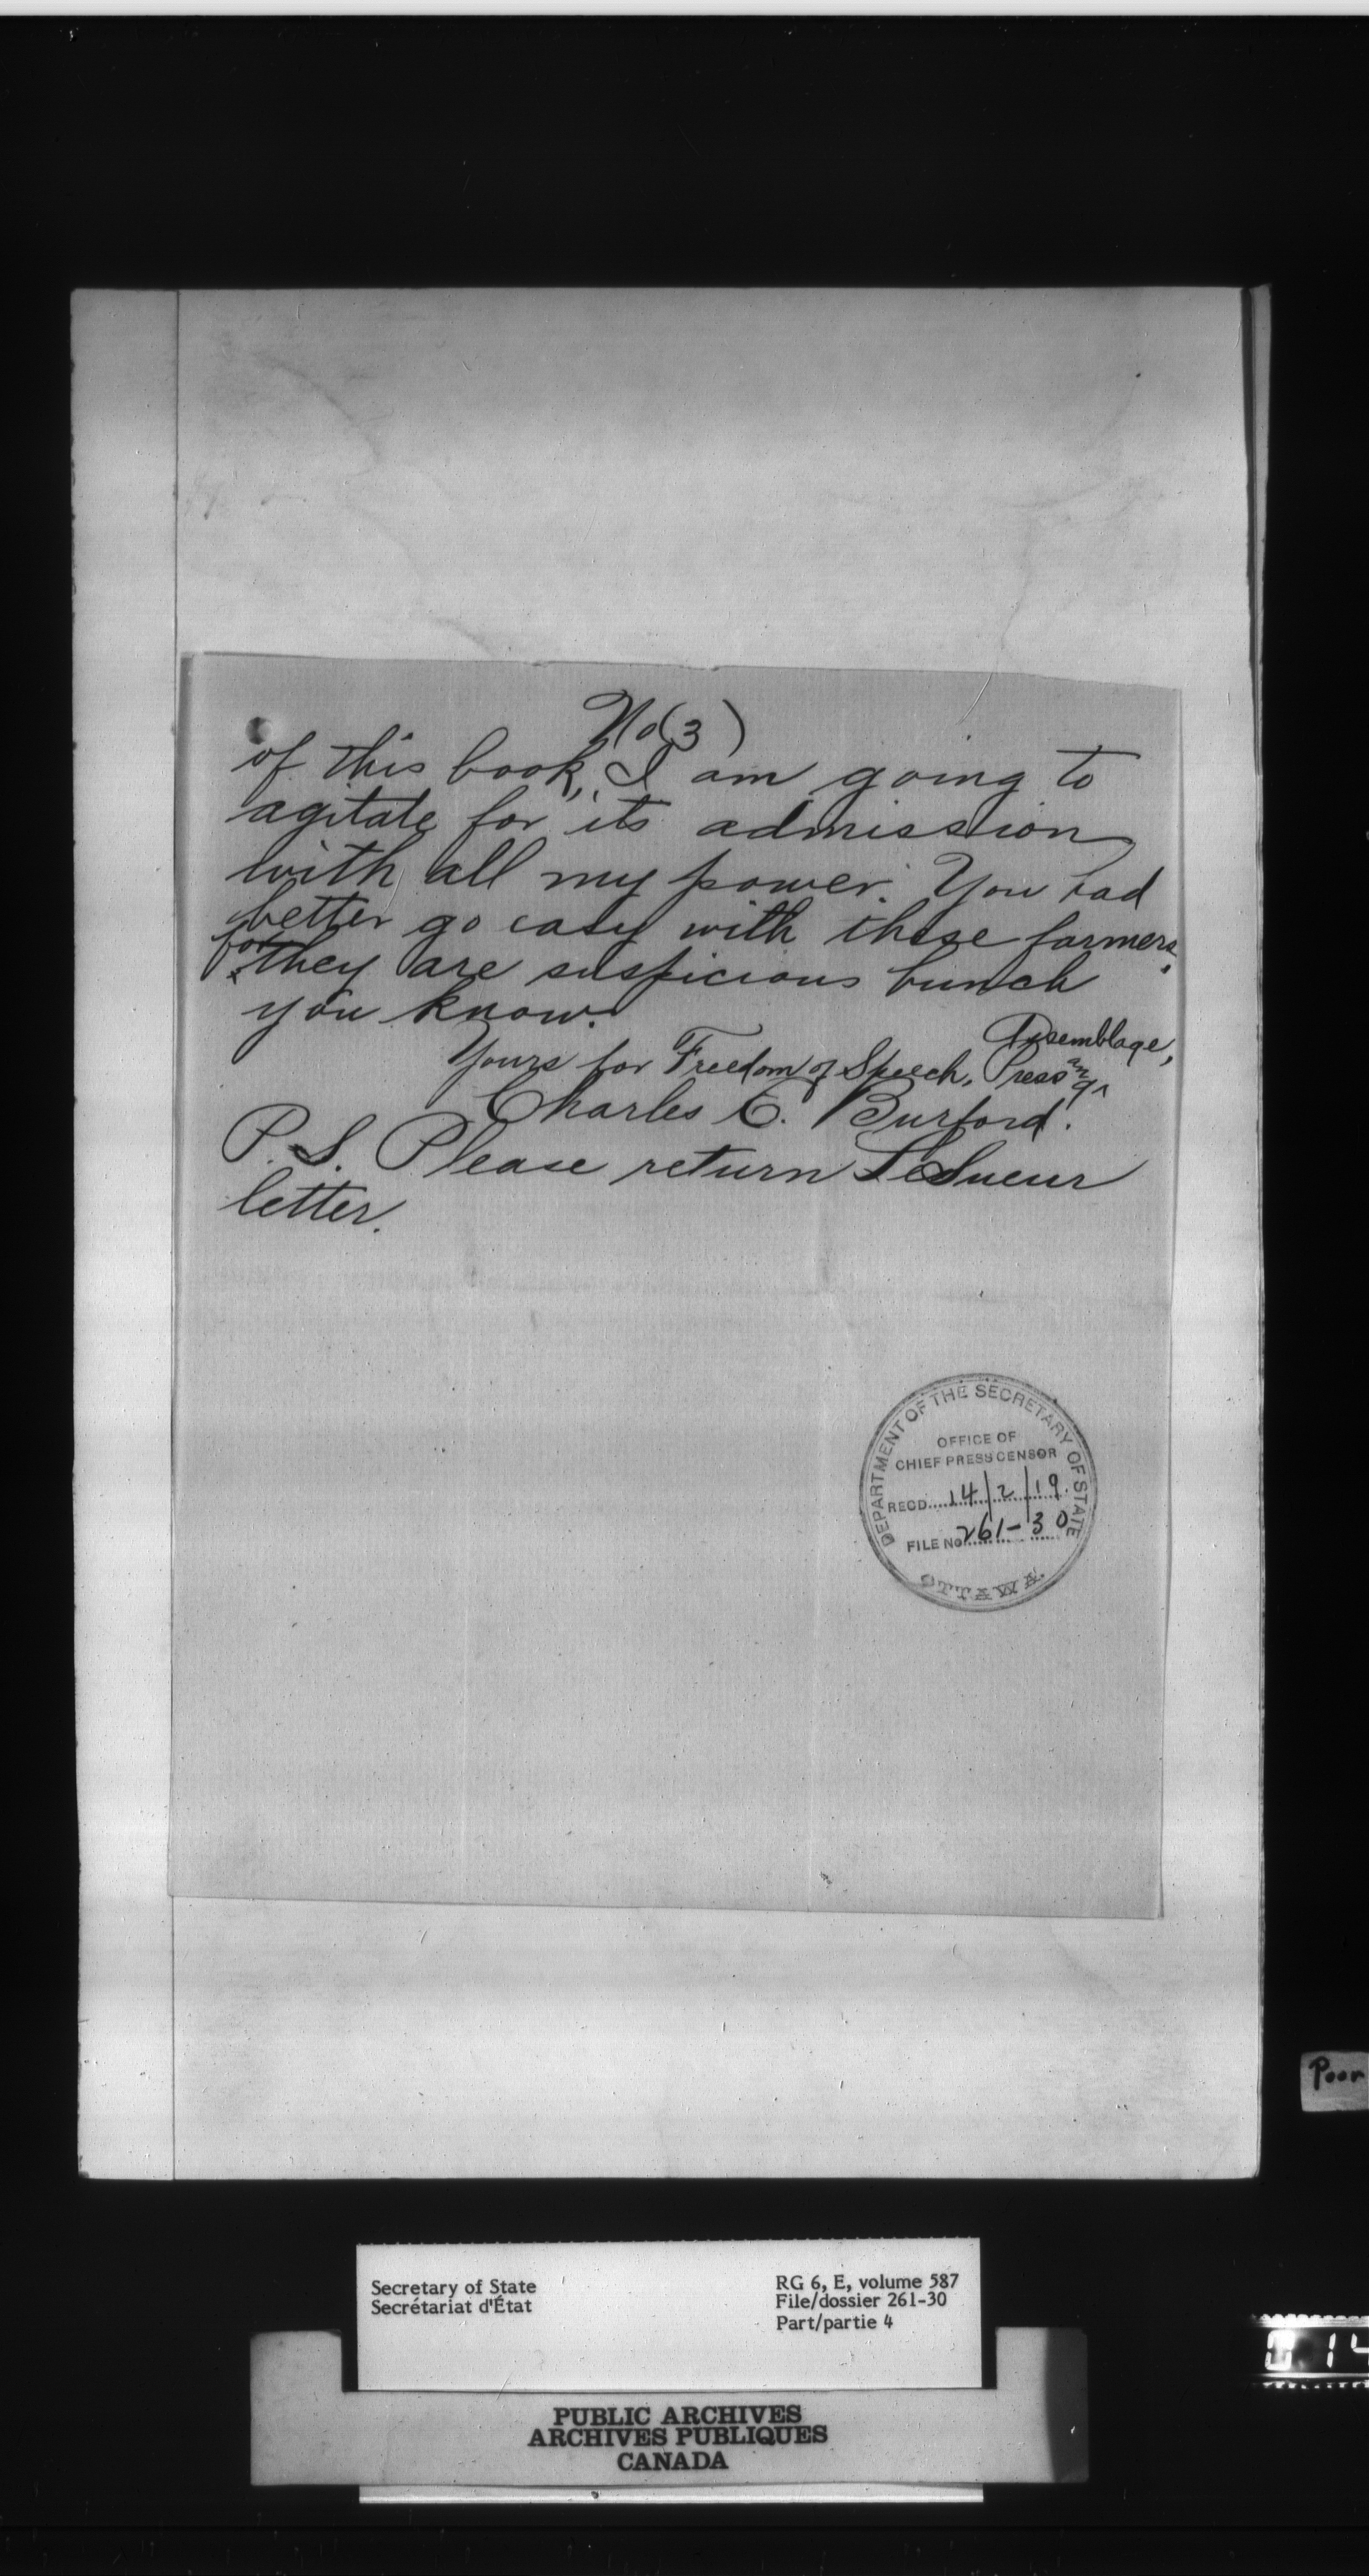 No (3)
of this book, I am going to
agitate for its admission
with all my power. You had
better go easy with these farmers,
for they are suspicious bunch
you know.
Yours for Freedom of Speech, Press and Assemblage,
Charles E. Burford.
P.S. Please return LeSueur
letter.
DEPARTMENT OF THE SECRETARY OF STATE
OFFICE OF
CHIEF PRESS CENSOR
RECD. 14/2/19.
FILE NO. 261-30
OTTAWA.
Poor
Secretary of State
Secrétariat d'État
RG 6, E, volume 587
File/dossier 261-30
Part/partie 4
PUBLIC ARCHIVES
ARCHIVES PUBLIQUES
CANADA